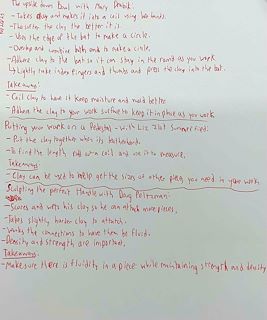 The upside down Bowl with Mary
- Takes clay and makes it into a coil using her hands.
- The softer the clay the better it is
- Uses the edge of the bat to make a circle.
- Overlap and combine both ends to make a circle.
- Adhere clay to the bat so it can stay in the round as you work
↳ Lightly take index fingers and thumbs and press the clay into the bat.
Takeaways:
- Coil clay to have it keep moisture and mold better
- Adhere the clay to your work surface to keep it in place as you work
Putting your work on a Pedestal - with Liz Zlot Summerfield:
- Put the clay together when its leatherhard.
- To find the length roll a coil and use it to measure.
Takeaways:
- Clay can be used to help get the sizes of other pieces you need in your work
Sculpting the perfect Handle with Doug Peltzman:
- Scores and wets his clay so he can attach more pieces.
- Takes slightly harder clay to attatch.
- Works the connections to have them be fluid.
- Density and strength are important.
Takeaways:
- Make sure there is fluidity in a piece while maintaining strength and density